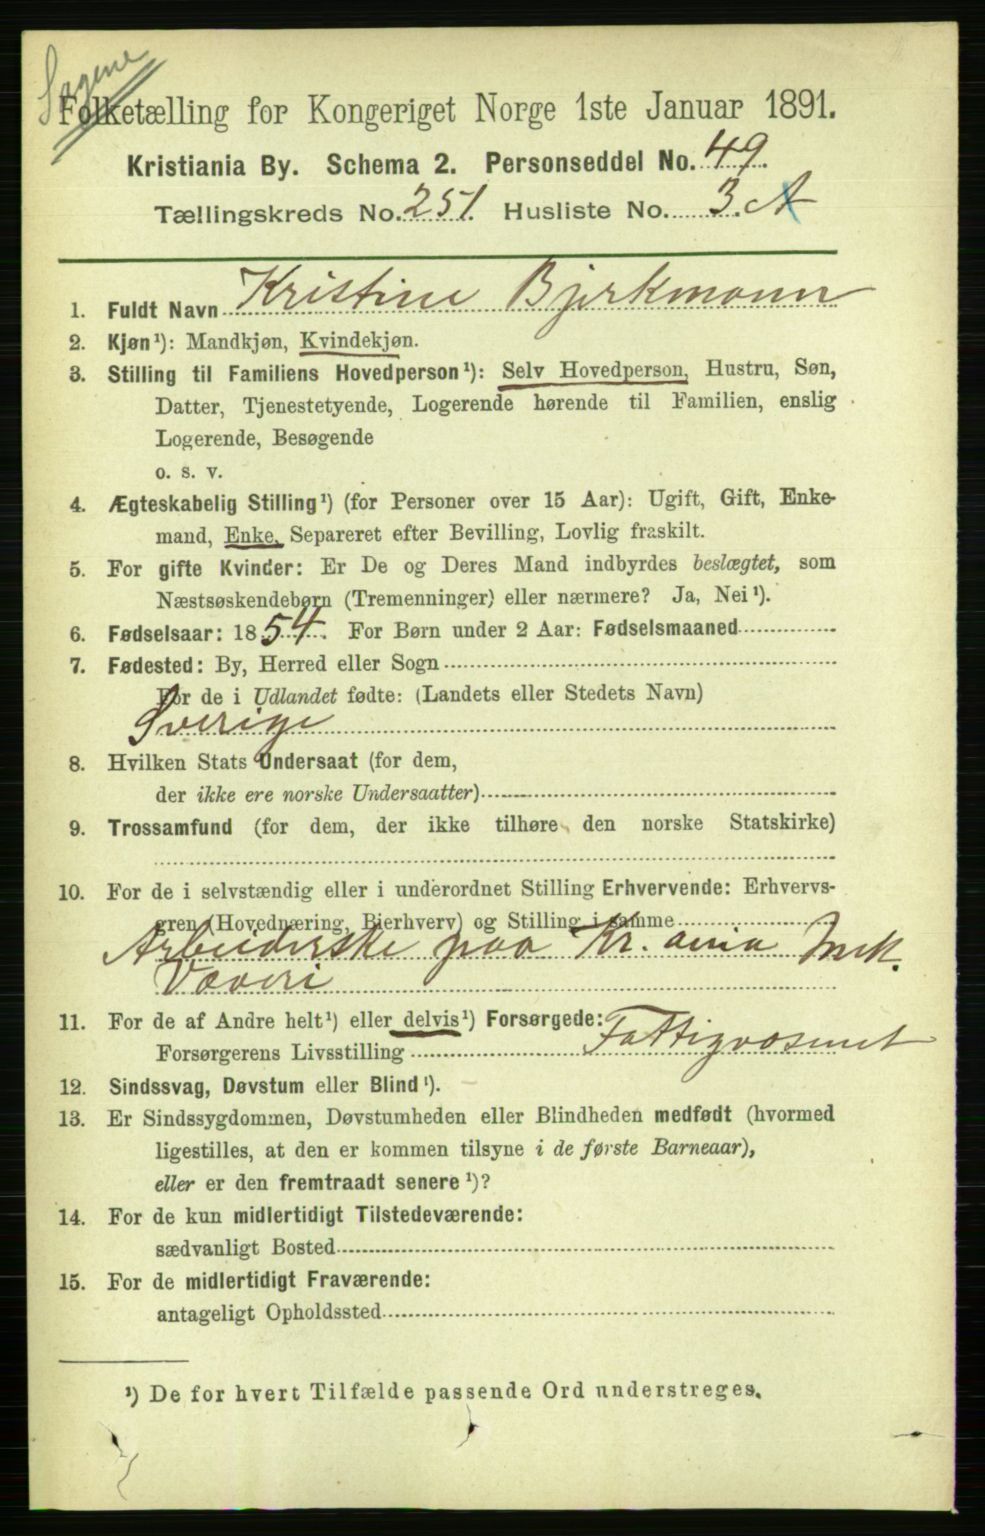 Sagene
Folketælling for Kongeriget Norge 1ste Januar 1891.
Kristiania By. Schema 2. Personseddel No. 49.
Tællingskreds No. 251. Husliste No. 3. A
1. Fuldt Navn Kristine Bjørkmann
2. Kjøn¹): Mandkjøn, Kvindekjøn.
3. Stilling til Familiens Hovedperson¹): Selv Hovedperson, Hustru, Søn,
Datter, Tjenestetyende, Logerende hørende til Familien, enslig
Logerende, Besøgende
o. s. v.
4. Ægteskabelig Stilling¹) (for Personer over 15 Aar): Ugift, Gift, Enke-
mand, Enke, Separeret efter Bevilling, Lovlig fraskilt.
5. For gifte Kvinder: Er De og Deres Mand indbyrdes beslægtet, som
Næstsøskendebørn (Tremenninger) eller nærmere? Ja, Nei¹).
6. Fødselsaar: 1854. For Børn under 2 Aar: Fødselsmaaned
7. Fødested: By, Herred eller Sogn
For de i Udlandet fødte: (Landets eller Stedets Navn)
Sverige
8. Hvilken Stats Undersaat (for dem,
der ikke ere norske Undersaatter)
9. Trossamfund (for dem, der ikke tilhøre den norske Statskirke)
10. For de i selvstændig eller i underordnet Stilling Erhvervende: Erhvervs-
gren (Hovednæring, Bierhverv) og Stilling i samme
Arbeiderske paa Kr.ania Mek.
Væveri
11. For de af Andre helt¹) eller delvis¹) Forsørgede:
Forsørgerens Livsstilling Fattigvæsenet
12. Sindssvag, Døvstum eller Blind¹).
13. Er Sindssygdommen, Døvstumheden eller Blindheden medfødt (hvormed
ligestilles, at den er kommen tilsyne i de første Barneaar),
eller er den fremtraadt senere¹)?
14. For de kun midlertidigt Tilstedeværende:
sædvanligt Bosted
15. For de midlertidigt Fraværende:
antageligt Opholdssted
¹) De for hvert Tilfælde passende Ord understreges.